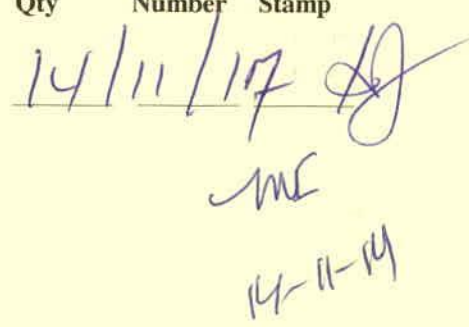 Qty Number Stamp
14/11/17
14-11-14